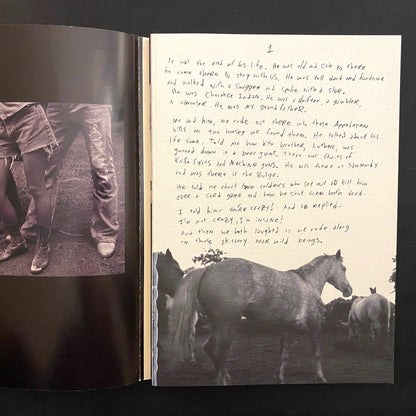 1
It was the end of his life. He was old and sick so there
he came there to stay with us. He was tall dark and handsome
and walked with a swagger and spoke with a slur.
He was Cherokee Indian. He was a drifter, a gambler,
a carouser. He was my grandfather.
Me and him, we rode out there into those Appalachian
hills on two horses we found there. He talked about his
life some. Told me how his brother, Luther, was
gunned down in a beer joint. There was stories of
knife fights and machine guns. He was there at Normandy
and was there at the Bulge.
He told me about two soldiers who set out to kill him
over a card game and how he shot them both dead.
I told him: You're crazy! And he replied:
I'm not crazy, I'm insane!
And then we both laughed as we rode along
on those skittery near wild beings.